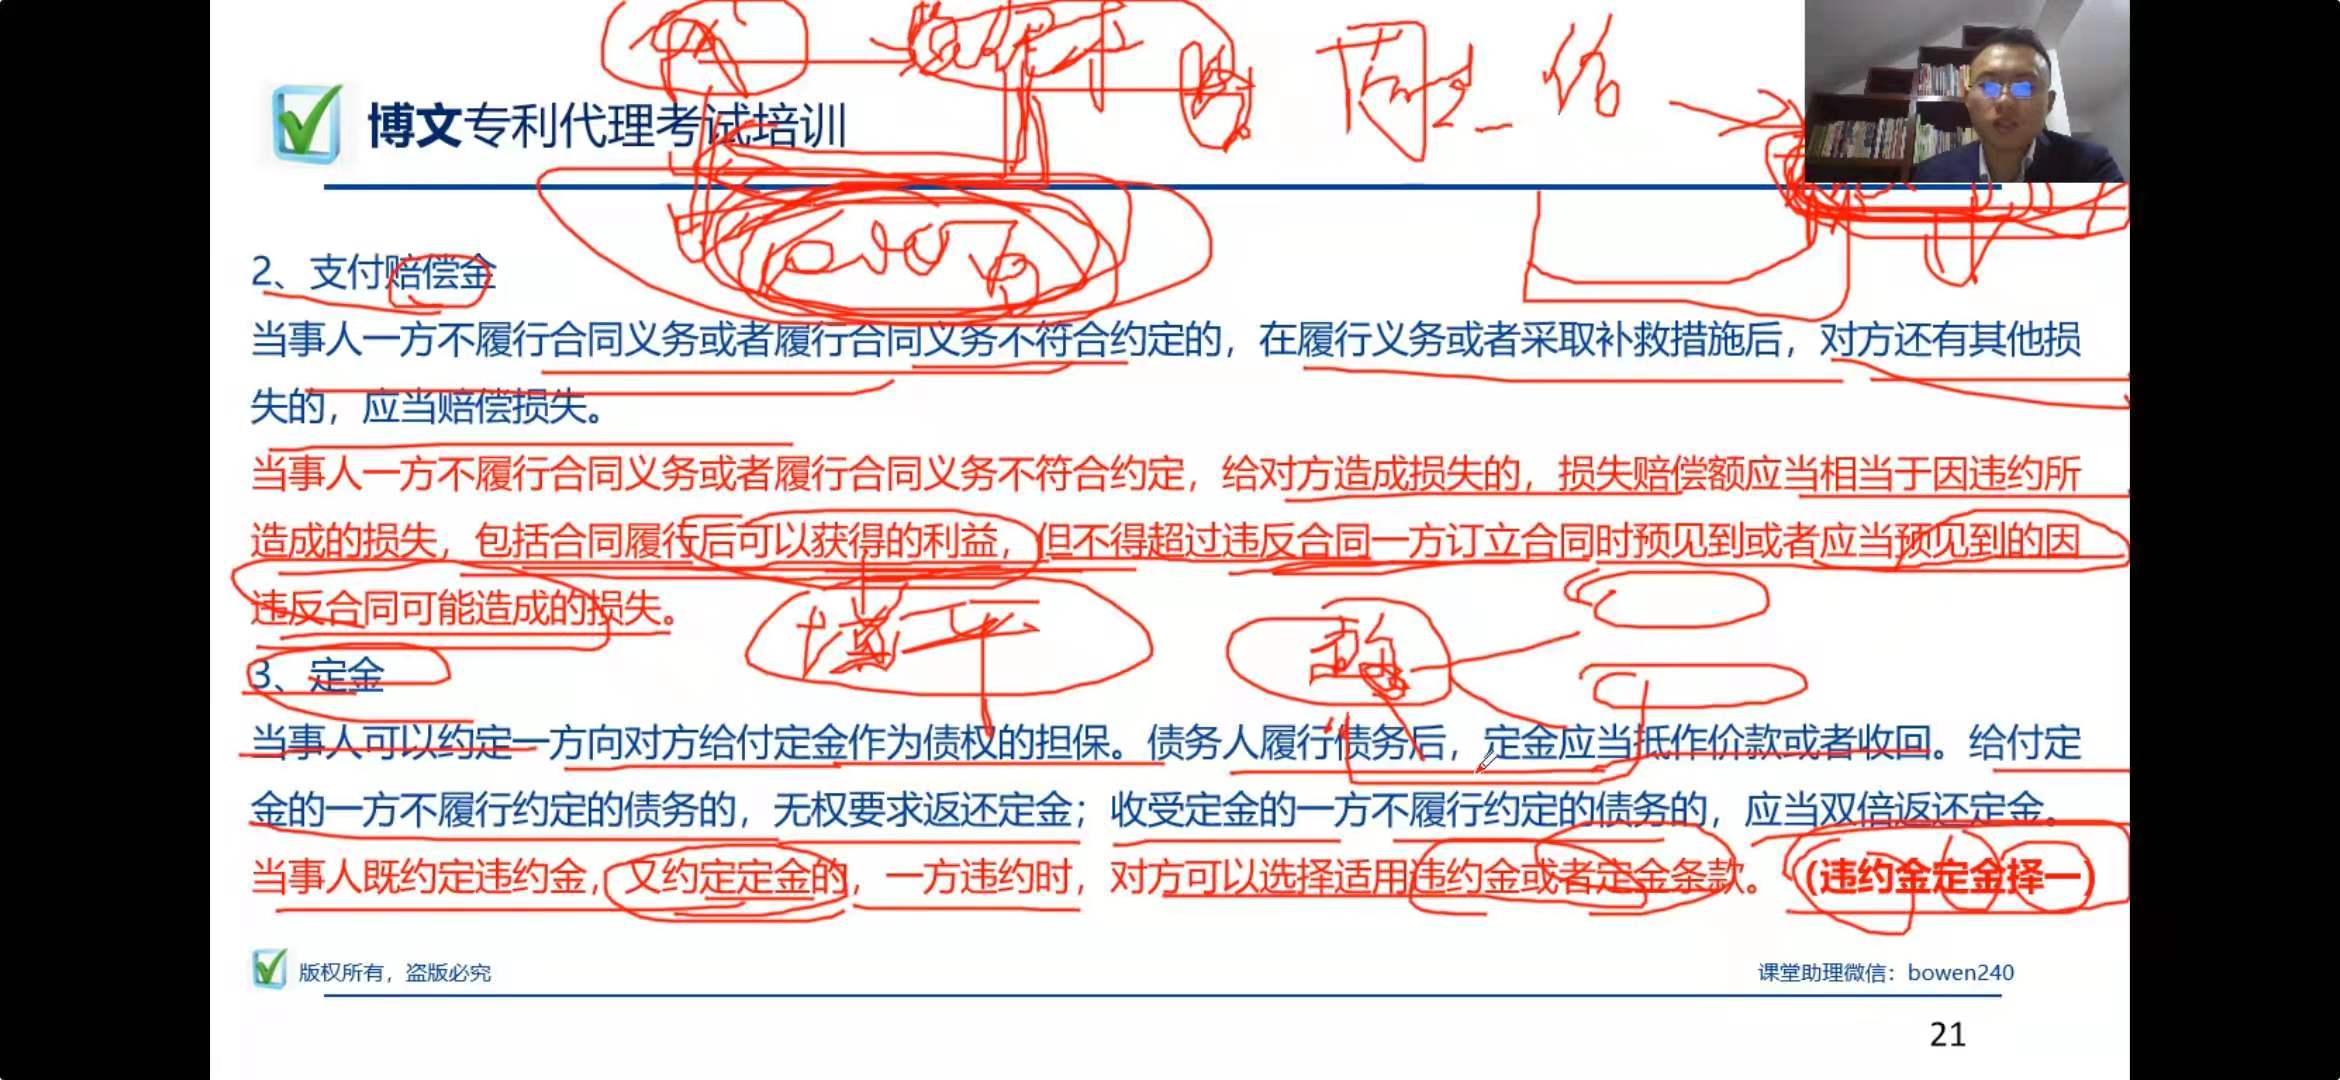 博文专利代理考试培训
2、支付赔偿金
当事人一方不履行合同义务或者履行合同义务不符合约定的，在履行义务或者采取补救措施后，对方还有其他损
失的，应当赔偿损失。
当事人一方不履行合同义务或者履行合同义务不符合约定，给对方造成损失的，损失赔偿额应当相当于因违约所
造成的损失，包括合同履行后可以获得的利益，但不得超过违反合同一方订立合同时预见到或者应当预见到的因
违反合同可能造成的损失。
3、定金
当事人可以约定一方向对方给付定金作为债权的担保。债务人履行债务后，定金应当抵作价款或者收回。给付定
金的一方不履行约定的债务的，无权要求返还定金；收受定金的一方不履行约定的债务的，应当双倍返还定金。
当事人既约定违约金，又约定定金的，一方违约时，对方可以选择适用违约金或者定金条款。 (违约金定金择一)
版权所有，盗版必究
课堂助理微信：bowen240
21